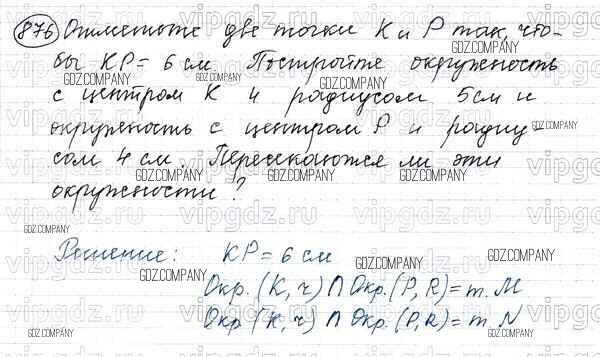 876 Отметьте две точки К и Р так, что-
бы КР = 6 см. Постройте окружность
с центром К и радиусом 5 см и
окружность с центром Р и радиу-
сом 4 см. Пересекаются ли эти
окружности?
Решение: КР = 6 см
Окр. (К, r) ∩ Окр. (Р, R) = т. М
Окр (К, r) ∩ Окр. (Р, R) = т. N